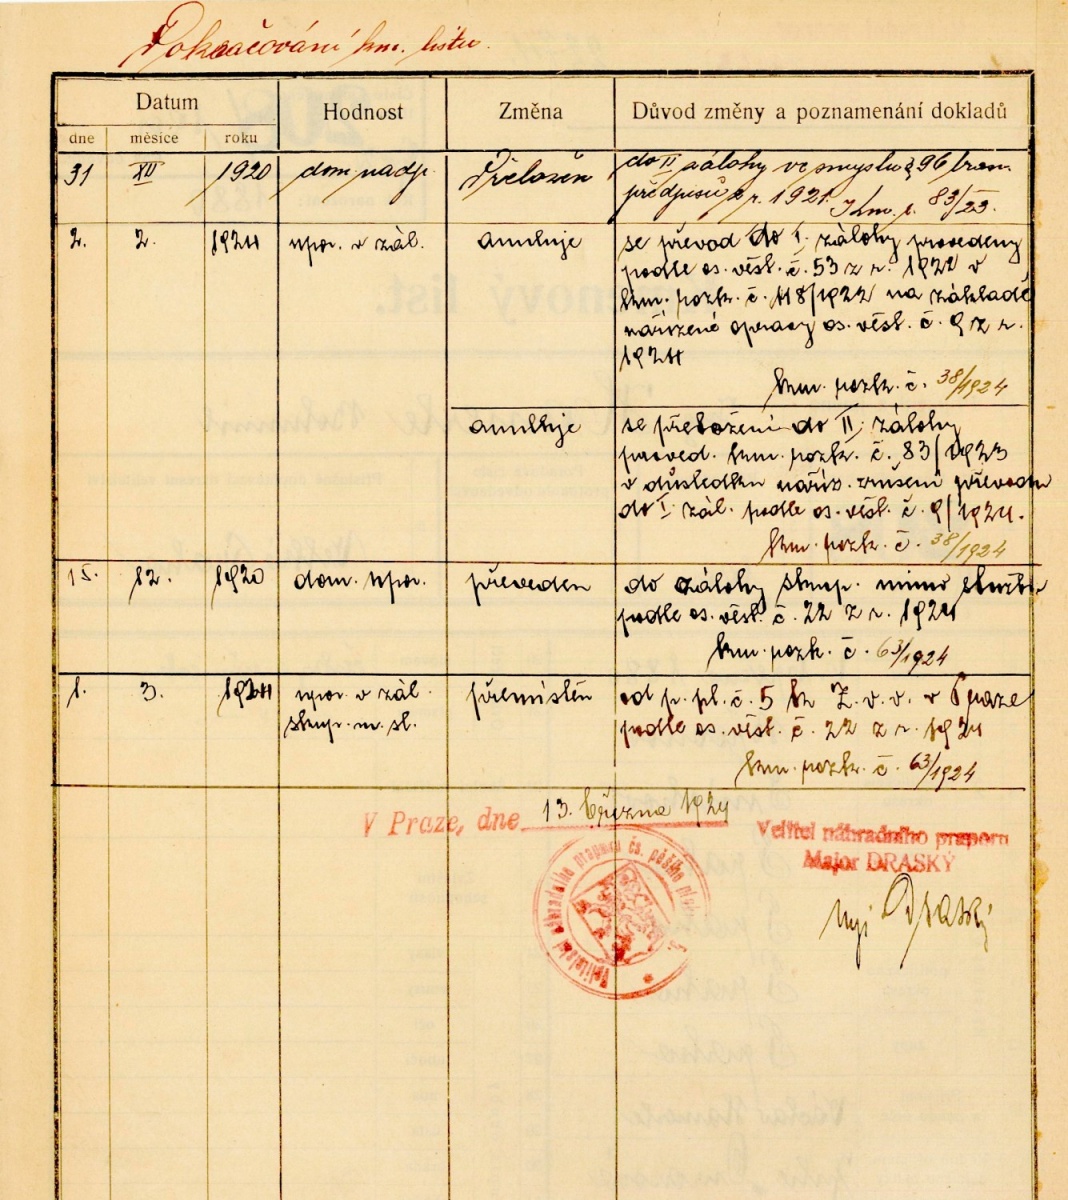 Pokračování km. listu.
Datum
Hodnost
Změna
Důvod změny a poznamenání dokladů
dne měsíce roku
31 XII 1920 dom. nadp. Přeložen do II zálohy ve smyslu § 96 bran.
předpisů z r. 1921. Km. č. 83/23.
2. 2. 1924 npor. v zál. anuluje se převod do I. zálohy provedený
podle os. věst. č. 53 z r. 1922 v
km. pozn. č. 118/1922 na základě
nařízené opravy os. věst. č. 9 z r.
1924
č. 38/1924
anuluje se přeložení do II. zálohy
proved. č. 83/1923
v důsledku naříz. zrušení převodu
do I. zál. podle os. věst. č. 9/1924.
č. 38/1924
15. 12. 1920 dom. npor. převeden do zálohy skup. mimo službu
podle os. věst. č. 22 z r. 1924
č. 63/1924
1. 3. 1924 npor. v zál. přemístěn od p. pl. č. 5 k Z. v. v. v Praze
skup. m. sl. podle os. věst. č. 22 z r. 1924
č. 63/1924
V Praze, dne 13. března 1924
Velitel náhradního praporu
Major DRASKÝ
Velitelství náhradního praporu čs. pěšího pluku 5.
mjr Draský